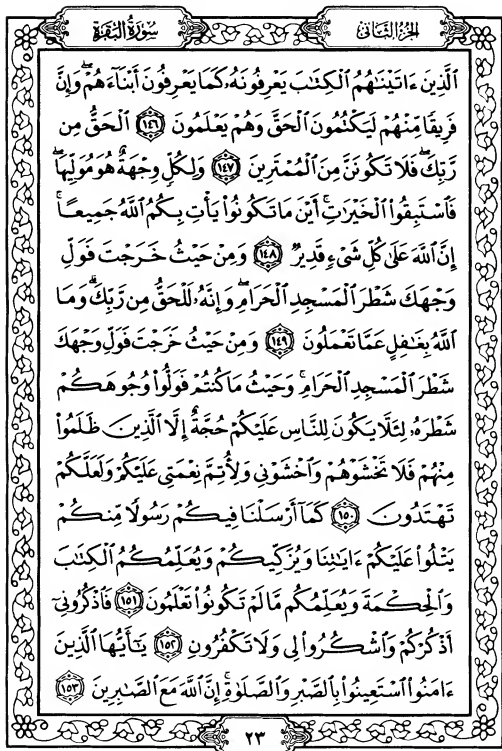 سورة البقرة
الجزء الثانى
ٱلَّذِينَ ءَاتَيۡنَٰهُمُ ٱلۡكِتَٰبَ يَعۡرِفُونَهُۥ كَمَا يَعۡرِفُونَ أَبۡنَآءَهُمۡۖ وَإِنَّ
فَرِيقٗا مِّنۡهُمۡ لَيَكۡتُمُونَ ٱلۡحَقَّ وَهُمۡ يَعۡلَمُونَ ١٤٦ ٱلۡحَقُّ مِن
رَّبِّكَۖ فَلَا تَكُونَنَّ مِنَ ٱلۡمُمۡتَرِينَ ١٤٧ وَلِكُلّٖ وِجۡهَةٌ هُوَ مُوَلِّيهَاۖ
فَٱسۡتَبِقُواْ ٱلۡخَيۡرَٰتِۚ أَيۡنَ مَا تَكُونُواْ يَأۡتِ بِكُمُ ٱللَّهُ جَمِيعًاۚ
إِنَّ ٱللَّهَ عَلَىٰ كُلِّ شَيۡءٖ قَدِيرٞ ١٤٨ وَمِنۡ حَيۡثُ خَرَجۡتَ فَوَلِّ
وَجۡهَكَ شَطۡرَ ٱلۡمَسۡجِدِ ٱلۡحَرَامِۖ وَإِنَّهُۥ لَلۡحَقُّ مِن رَّبِّكَۗ وَمَا
ٱللَّهُ بِغَٰفِلٍ عَمَّا تَعۡمَلُونَ ١٤٩ وَمِنۡ حَيۡثُ خَرَجۡتَ فَوَلِّ وَجۡهَكَ
شَطۡرَ ٱلۡمَسۡجِدِ ٱلۡحَرَامِۚ وَحَيۡثُ مَا كُنتُمۡ فَوَلُّواْ وُجُوهَكُمۡ
شَطۡرَهُۥ لِئَلَّا يَكُونَ لِلنَّاسِ عَلَيۡكُمۡ حُجَّةٌ إِلَّا ٱلَّذِينَ ظَلَمُواْ
مِنۡهُمۡ فَلَا تَخۡشَوۡهُمۡ وَٱخۡشَوۡنِي وَلِأُتِمَّ نِعۡمَتِي عَلَيۡكُمۡ وَلَعَلَّكُمۡ
تَهۡتَدُونَ ١٥٠ كَمَآ أَرۡسَلۡنَا فِيكُمۡ رَسُولٗا مِّنكُمۡ
يَتۡلُواْ عَلَيۡكُمۡ ءَايَٰتِنَا وَيُزَكِّيكُمۡ وَيُعَلِّمُكُمُ ٱلۡكِتَٰبَ
وَٱلۡحِكۡمَةَ وَيُعَلِّمُكُم مَّا لَمۡ تَكُونُواْ تَعۡلَمُونَ ١٥١ فَٱذۡكُرُونِيٓ
أَذۡكُرۡكُمۡ وَٱشۡكُرُواْ لِي وَلَا تَكۡفُرُونِ ١٥٢ يَٰٓأَيُّهَا ٱلَّذِينَ
ءَامَنُواْ ٱسۡتَعِينُواْ بِٱلصَّبۡرِ وَٱلصَّلَوٰةِۚ إِنَّ ٱللَّهَ مَعَ ٱلصَّٰبِرِينَ ١٥٣
٢٣